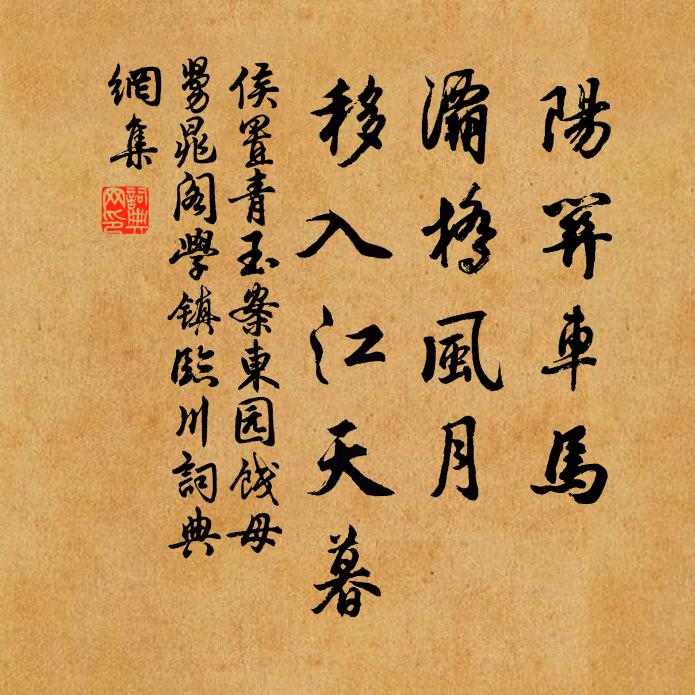 陽關車馬
灞橋風月
移入江天暮
侯置青玉案東园饯母
舅晁阁學镇臨川詞典
網集
詞典
网印